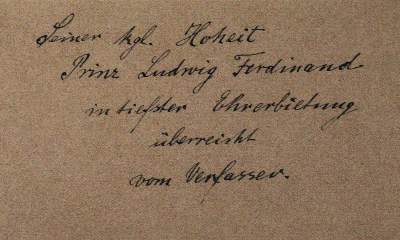 Seiner kgl. Hoheit
Prinz Ludwig Ferdinand
in tiefster Ehrerbietung
überreicht
vom Verfasser.